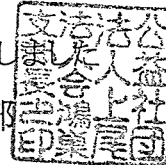 しました
公益社団
法人上尾
法人会鴻巣
支部長之印